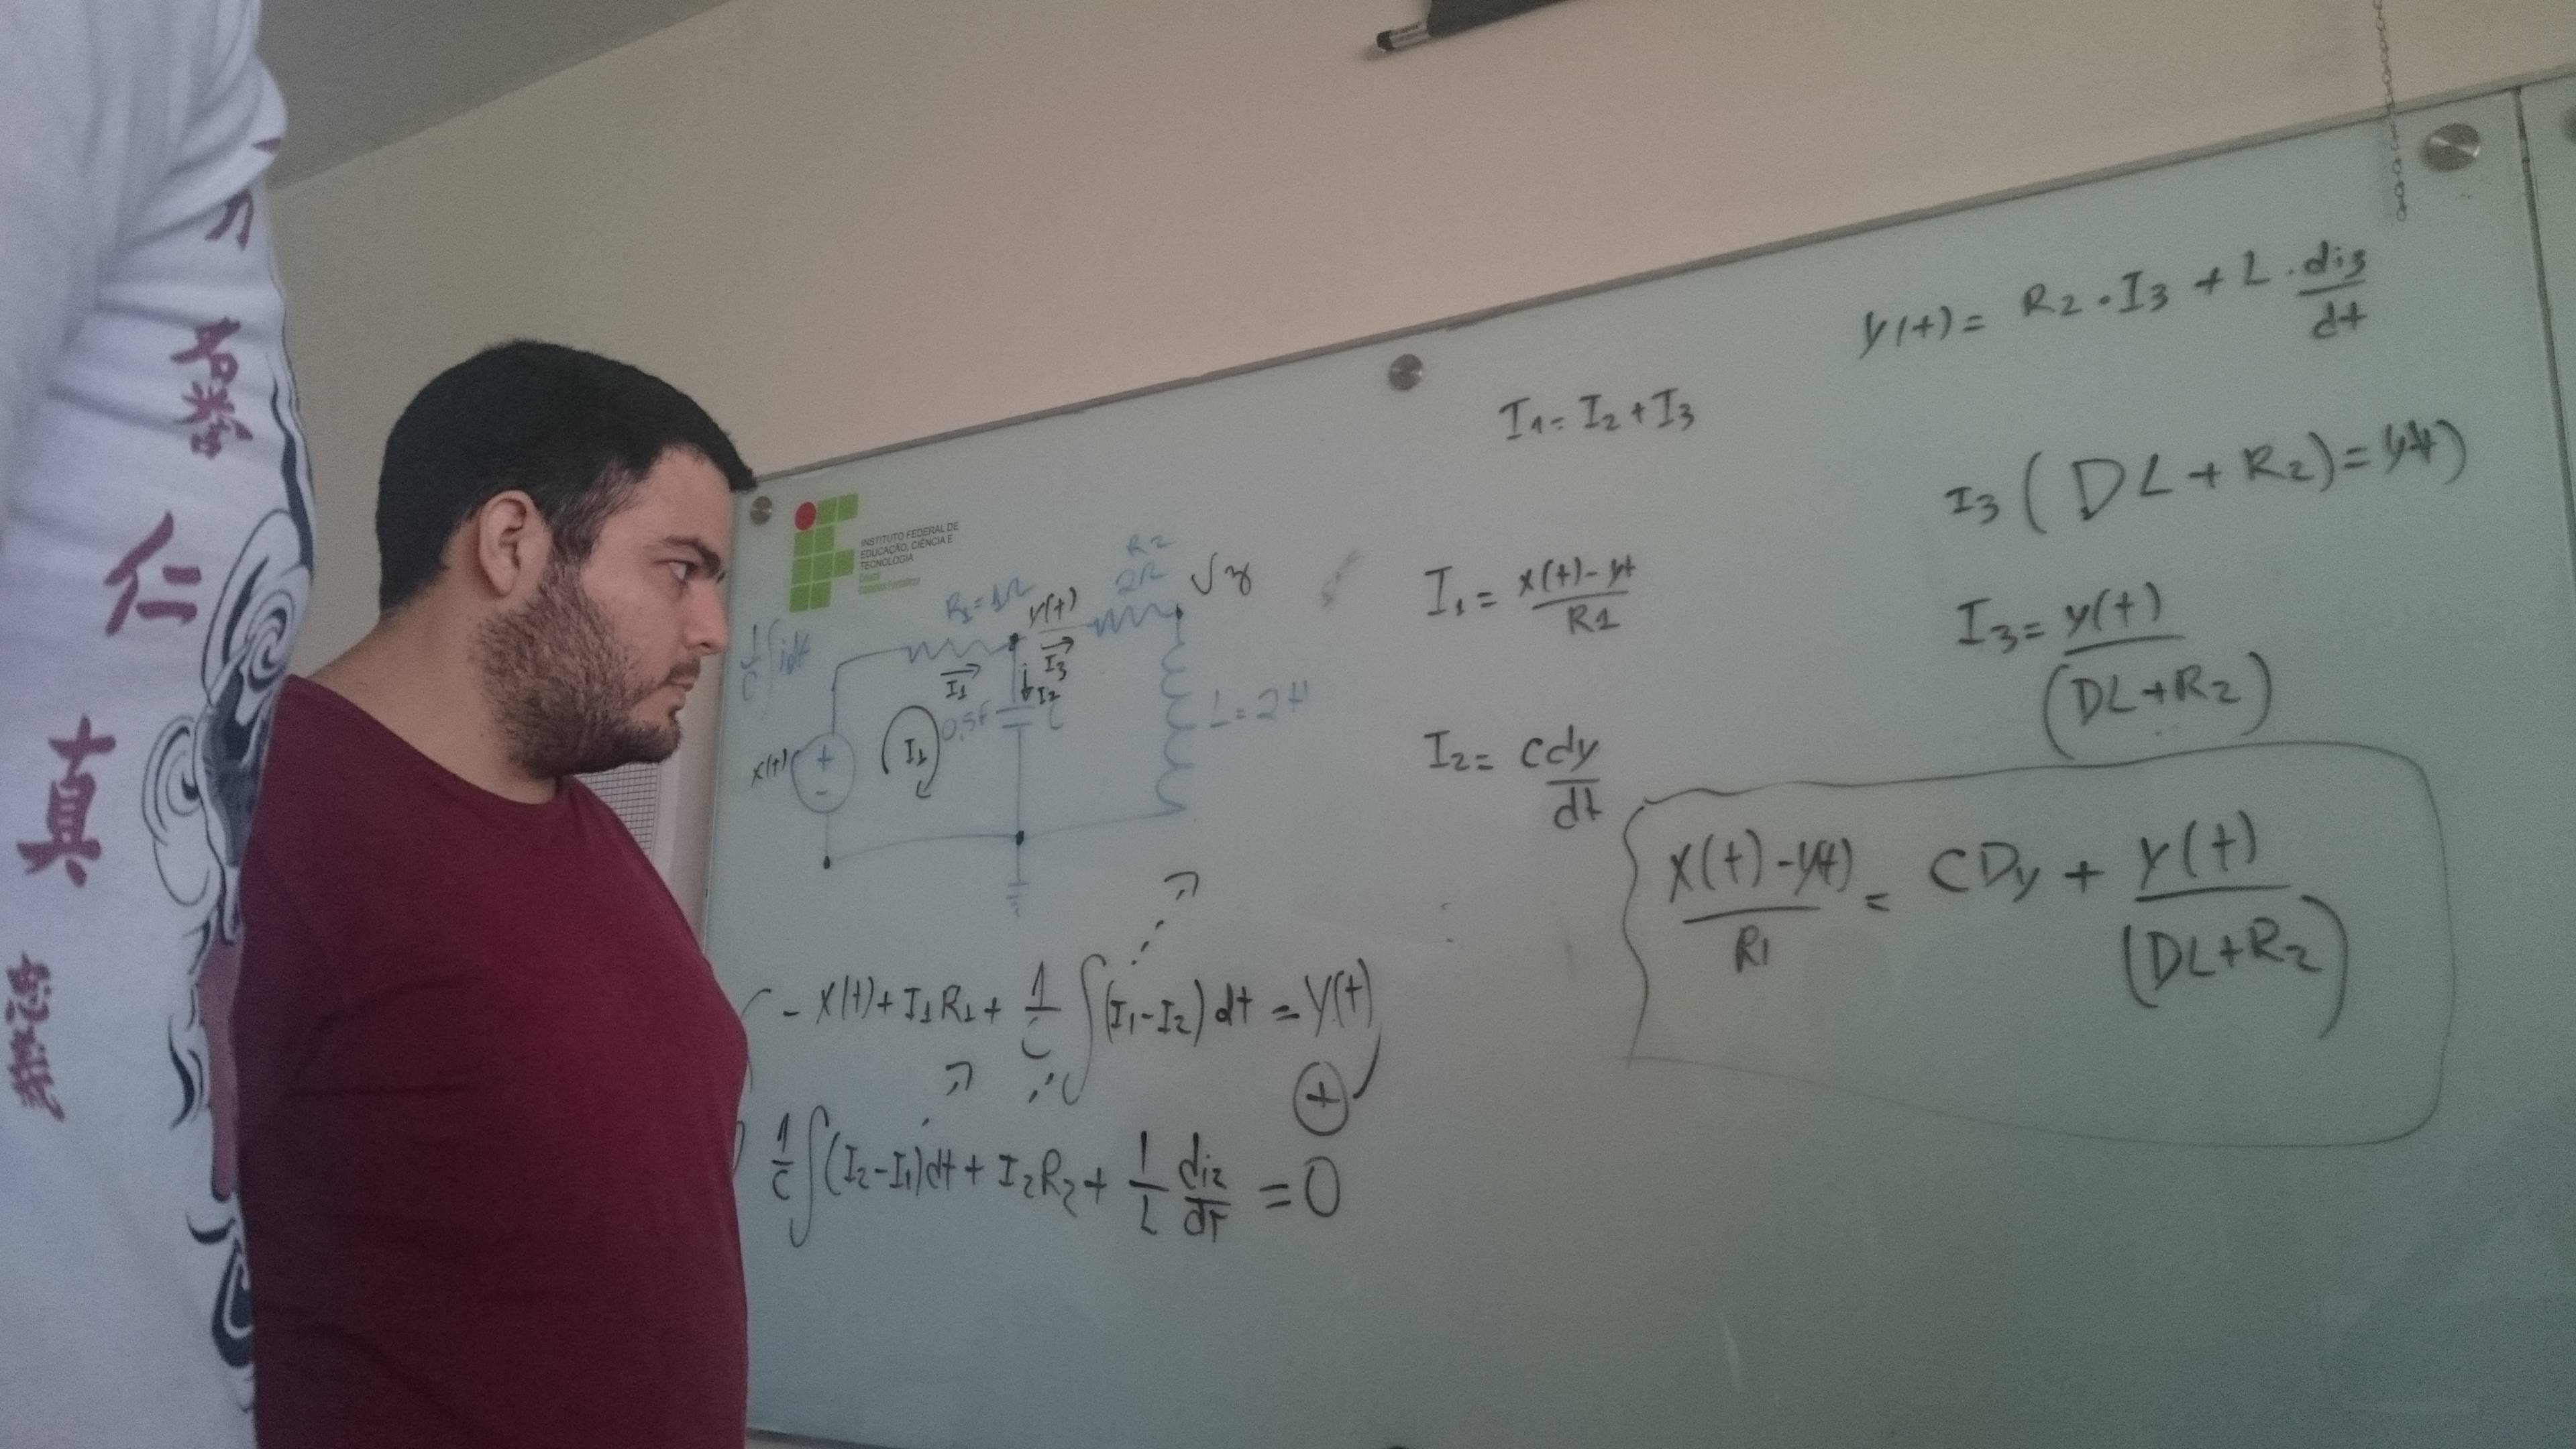 名
誉
仁
真
忠
義
INSTITUTO FEDERAL DE
EDUCAÇÃO, CIÊNCIA E
TECNOLOGIA
Ceará
1/C ∫idt
R1=1Ω
y(t)
R2
2Ω
I1
I3
I2
0,5F
C
L=2H
x(t)
+
-
I1
- x(t)+I1R1+ 1/C ∫(I1-I2)dt = y(t)
+
1/C ∫(I2-I1)dt + I2R2 + 1/L di2/dt = 0
I1=I2+I3
I1= x(t)-yt/R1
I2= Cdy/dt
y(t)= R2·I3 + L·di3/dt
I3(DL+R2)=y(t)
I3= y(t)/(DL+R2)
x(t)-y(t)/R1 = CDy + y(t)/(DL+R2)